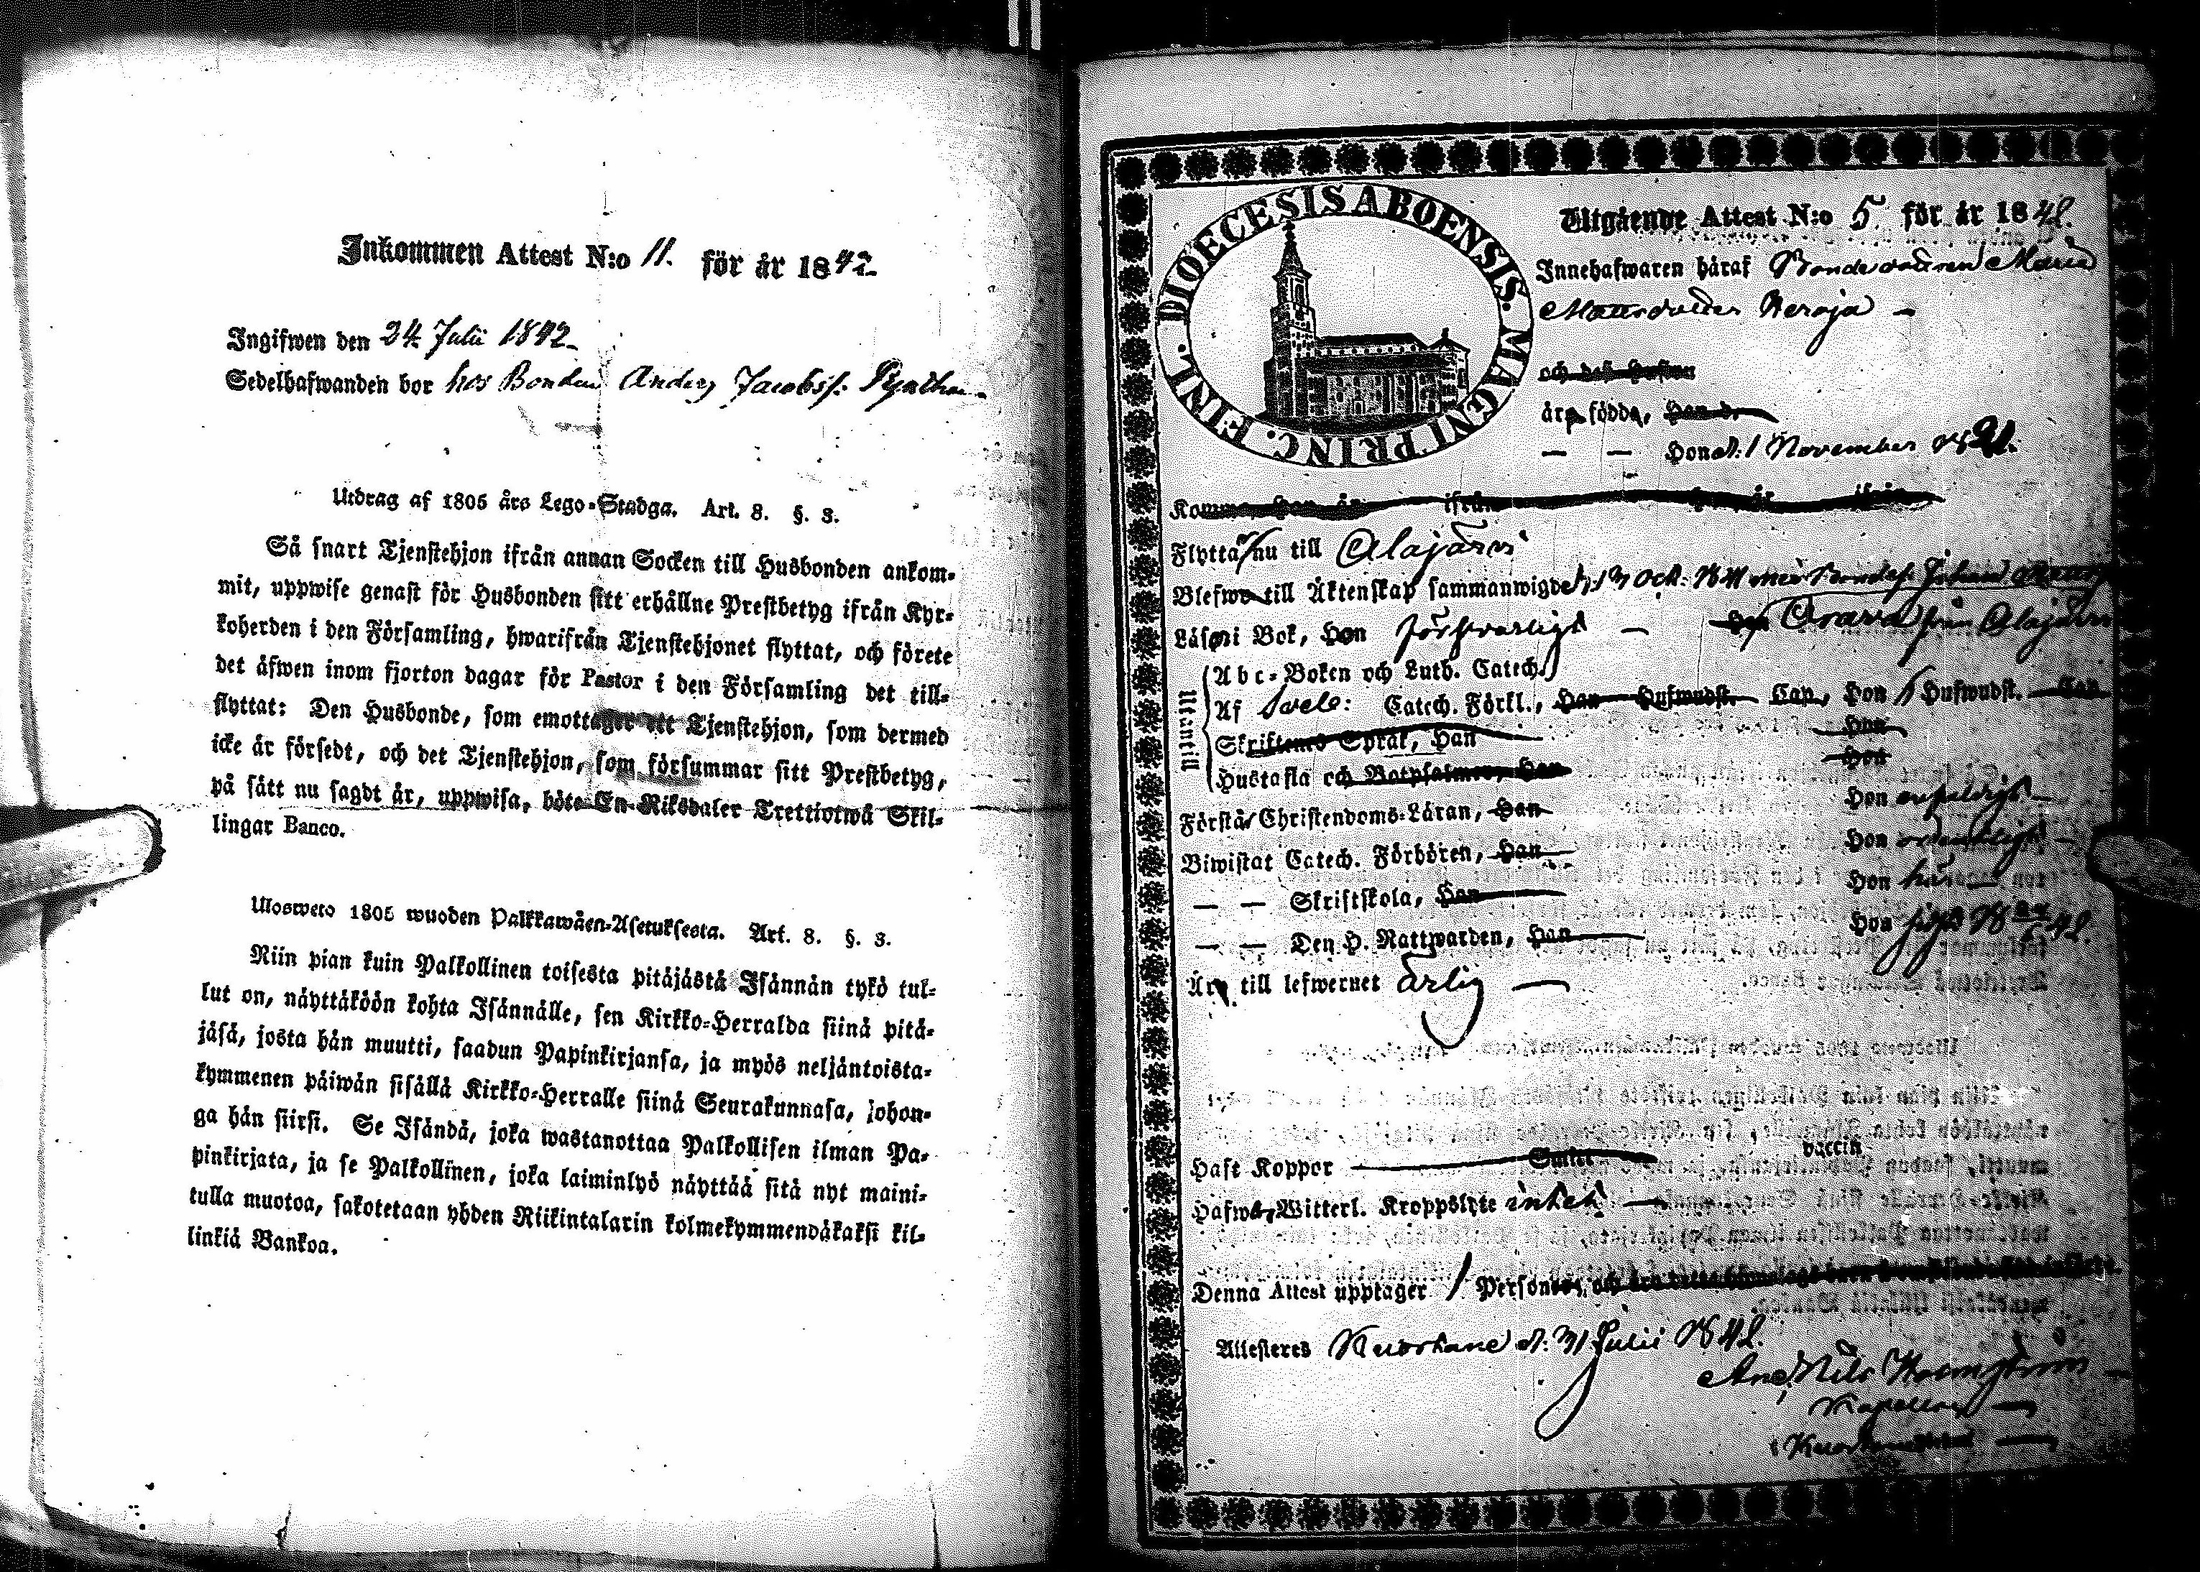 Inkommen Attest N:o 11. för år 1842
Ingifwen den 24 Julii 1842
Sedelhafwanden bor hos Bonden Anders Jacobss.
Utdrag af 1805 års Lego-Stadga. Art. 8. §. 3.
Så snart Tjenstehjon ifrån annan Socken till Husbonden ankom-
mit, uppwise genast för Husbonden sitt erhållne Prestbetyg ifrån Kyr-
koherden i den Församling, hwarifrån Tjenstehjonet flyttat, och förete
det äfwen inom fjorton dagar för Pastor i den Församling det till-
flyttat: Den Husbonde, som emottager ett Tjenstehjon, som dermed
icke är försedt, och det Tjenstehjon, som försummar sitt Prestbetyg,
på sätt nu sagdt är, uppwisa, böte En Riksdaler Trettiotwå Skil-
lingar Banco.
Ulosweto 1805 wuoden Palkkawäen-Asetuksesta. Art. 8. §. 3.
Niin pian kuin Palkollinen toisesta pitäjästä Isännän tykö tul-
lut on, näyttäköön kohta Isännälle, sen Kirkko-Herralda siinä pitä-
jäsä, josta hän muutti, saadun Papinkirjansa, ja myös neljäntoista-
kymmenen päiwän sisällä Kirkko-Herralle siinä Seurakunnasa, johon-
ga hän siirsi. Se Isändä, joka wastanottaa Palkollisen ilman Pa-
pinkirjata, ja se Palkollinen, joka laiminlyö näyttää sitä nyt maini-
tulla muotoa, sakotetaan yhden Riikintalarin kolmekymmendäkaksi kil-
linkiä Bankoa.
DIOECESIS ABOENSIS. MAGNI PRINC. FINL.
Utgående Attest N:o 5 för år 1842.
Innehafwaren häraf Bondedottren Maria
Mattsdotter
och des Hustru
äro födde, Han d.
— — Hon d. 1 November
Komme Han år ifrån Hon år ifrån
Flytta nu till Alajärvi
Blefwo till Äktenskap sammanwigde
Läser i Bok, Hon försvarligt — från Alajärvi
Utantill
Abc-Boken och Luth. Catech.
Af Svebe: Catech. Förkl., Han Hufwudst. Cap., Hon Hufwudst. Cap.
Skriftens Språk, Han Hon
Hustafla och Botpsalmer, Han Hon
Förstå Christendoms-Läran, Han Hon enfaldigt —
Biwistat Catech. Förhören, Han Hon ordentligt —
— — Skriftskola, Han Hon här —
— — Den H. Nattwarden, Han Hon
Äro till lefwernet ärlig —
Haft Koppor vaccin
Hafwa Witterl. Kroppslyte intet —
Denna Attest upptager 1 Personer,
Attesteras Kuortane d. 31 Julii 1842.
Nils
Kapellan —